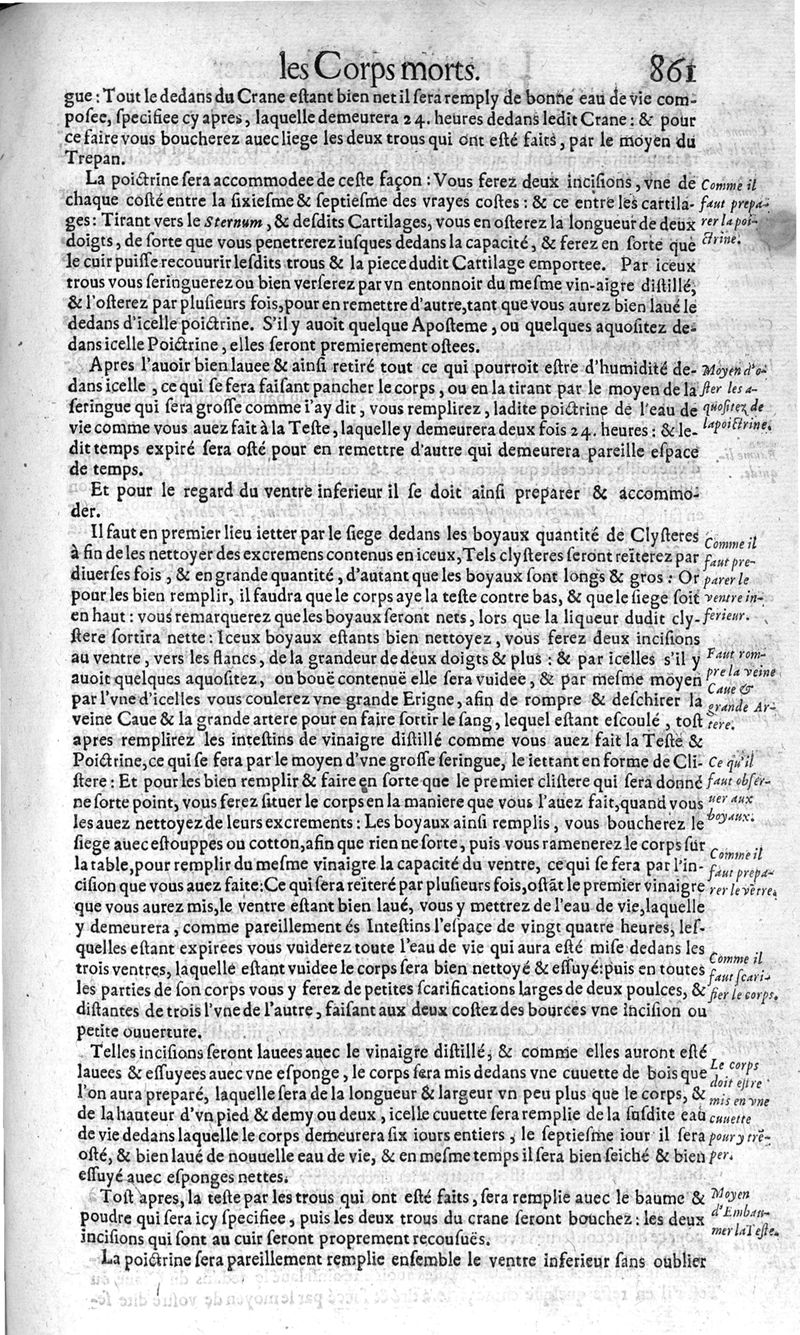 les Corps morts. 861
gue : Tout le dedans du Crane eſtant bien net il ſera remply de bonne eau de vie com-
poſee, ſpecifiee cy apres, laquelle demeurera 24. heures dedans ledit Crane : & pour
ce faire vous boucherez auec liege les deux trous qui ont eſté faits, par le moyen du
Trepan.
La poictrine ſera accommodee de ceſte façon : Vous ferez deux inciſions, vne de
chaque coſté entre la ſixieſme & ſeptieſme des vrayes coſtes : & ce entre les cartila-
ges : Tirant vers le Sternum, & deſdits Cartilages, vous en oſterez la longueur de deux
doigts, de ſorte que vous penetrerez iuſques dedans la capacité, & ferez en ſorte que
le cuir puiſſe recouurir leſdits trous & la piece dudit Cartilage emportee. Par iceux
trous vous ſeringuerez ou bien verſerez par vn entonnoir du meſme vin-aigre diſtillé,
& l'oſterez par pluſieurs fois, pour en remettre d'autre, tant que vous aurez bien laué le
dedans d'icelle poictrine. S'il y auoit quelque Apoſteme, ou quelques aquoſitez de-
dans icelle Poictrine, elles ſeront premierement oſtees.
Comme il
faut prepa-
rer la poi-
ctrine.
Apres l'auoir bien lauee & ainſi retiré tout ce qui pourroit eſtre d'humidité de-
dans icelle, ce qui ſe fera faiſant pancher le corps, ou en la tirant par le moyen de la
ſeringue qui ſera groſſe comme i'ay dit, vous remplirez, ladite poictrine de l'eau de
vie comme vous auez fait à la Teſte, laquelle y demeurera deux fois 24. heures : & le-
dit temps expiré ſera oſté pour en remettre d'autre qui demeurera pareille eſpace
de temps.
Moyen d'o-
ſter les a-
quoſitez de
la poictrine.
Et pour le regard du ventre inferieur il ſe doit ainſi preparer & accommo-
der.
Il faut en premier lieu ietter par le ſiege dedans les boyaux quantité de Clyſteres
à fin de les nettoyer des excremens contenus en iceux, Tels clyſteres ſeront reïterez par
diuerſes fois, & en grande quantité, d'autant que les boyaux ſont longs & gros : Or
pour les bien remplir, il faudra que le corps aye la teſte contre bas, & que le ſiege ſoit
en haut : vous remarquerez que les boyaux ſeront nets, lors que la liqueur dudit cly-
ſtere ſortira nette : Iceux boyaux eſtants bien nettoyez, vous ferez deux inciſions
au ventre, vers les flancs, de la grandeur de deux doigts & plus : & par icelles s'il y
auoit quelques aquoſitez, ou bouë contenuë elle ſera vuidee, & par meſme moyen
par l'vne d'icelles vous coulerez vne grande Erigne, afin de rompre & deſchirer la
veine Caue & la grande artere pour en faire ſortir le ſang, lequel eſtant eſcoulé, toſt
apres remplirez les inteſtins de vinaigre diſtillé comme vous auez fait la Teſte &
Poictrine, ce qui ſe fera par le moyen d'vne groſſe ſeringue, le iettant en forme de Cli-
ſtere : Et pour les bien remplir & faire en ſorte que le premier cliſtere qui ſera donné
ne ſorte point, vous ferez ſituer le corps en la maniere que vous l'auez fait, quand vous
les auez nettoyez de leurs excrements : Les boyaux ainſi remplis, vous boucherez le
ſiege auec eſtouppes ou cotton, afin que rien ne ſorte, puis vous ramenerez le corps ſur
la table, pour remplir du meſme vinaigre la capacité du ventre, ce qui ſe fera par l'in-
ciſion que vous auez faite : Ce qui ſera reïteré par pluſieurs fois, oſtãt le premier vinaigre
que vous aurez mis, le ventre eſtant bien laué, vous y mettrez de l'eau de vie, laquelle
y demeurera, comme pareillement és Inteſtins l'eſpace de vingt quatre heures, leſ-
quelles eſtant expirees vous vuiderez toute l'eau de vie qui aura eſté miſe dedans les
trois ventres, laquelle eſtant vuidee le corps ſera bien nettoyé & eſſuyé : puis en toutes
les parties de ſon corps vous y ferez de petites ſcarifications larges de deux poulces, &
diſtantes de trois l'vne de l'autre, faiſant aux deux coſtez des bources vne inciſion ou
petite ouuerture.
Comme il
faut pre-
parer le
ventre in-
ferieur.
Faut rom-
pre la veine
Caue &
grande Ar-
tere.
Ce qu'il
faut obſer-
uer aux
boyaux.
Comme il
faut prepa-
rer le vẽtre.
Comme il
faut ſcari-
fier le corps.
Telles inciſions ſeront lauees auec le vinaigre diſtillé, & comme elles auront eſté
lauees & eſſuyees auec vne eſponge, le corps ſera mis dedans vne cuuette de bois que
l'on aura preparé, laquelle ſera de la longueur & largeur vn peu plus que le corps, &
de la hauteur d'vn pied & demy ou deux, icelle cuuette ſera remplie de la ſuſdite eau
de vie dedans laquelle le corps demeurera ſix iours entiers, le ſeptieſme iour il ſera
oſté, & bien laué de nouuelle eau de vie, & en meſme temps il ſera bien ſeiché & bien
eſſuyé auec eſponges nettes.
Le corps
doit eſtre
mis en vne
cuuette
pour y trẽ-
per.
Toſt apres, la teſte par les trous qui ont eſté faits, ſera remplie auec le baume &
poudre qui ſera icy ſpecifiee, puis les deux trous du crane ſeront bouchez : les deux
inciſions qui ſont au cuir ſeront proprement recouſuës.
Moyen
d'Embau-
mer la Teſte.
La poictrine ſera pareillement remplie enſemble le ventre inferieur ſans oublier